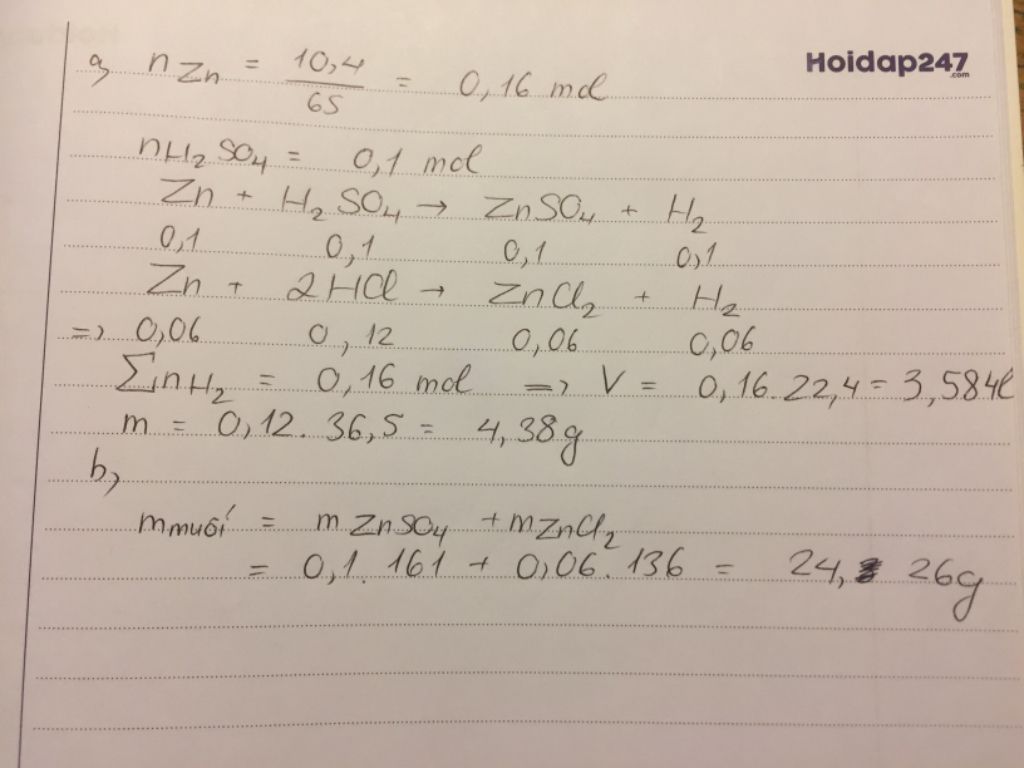 Hoidap247
.com
a, n Zn = 10,4 / 65 = 0,16 mol
nH₂SO₄ = 0,1 mol
Zn + H₂SO₄ → ZnSO₄ + H₂
0,1 0,1 0,1 0,1
Zn + 2HCl → ZnCl₂ + H₂
=> 0,06 0,12 0,06 0,06
∑nH₂ = 0,16 mol => V = 0,16.22,4 = 3,584l
m = 0,12.36,5 = 4,38g
b,
mmuối = m ZnSO₄ + m ZnCl₂
= 0,1.161 + 0,06.136 = 24,26g